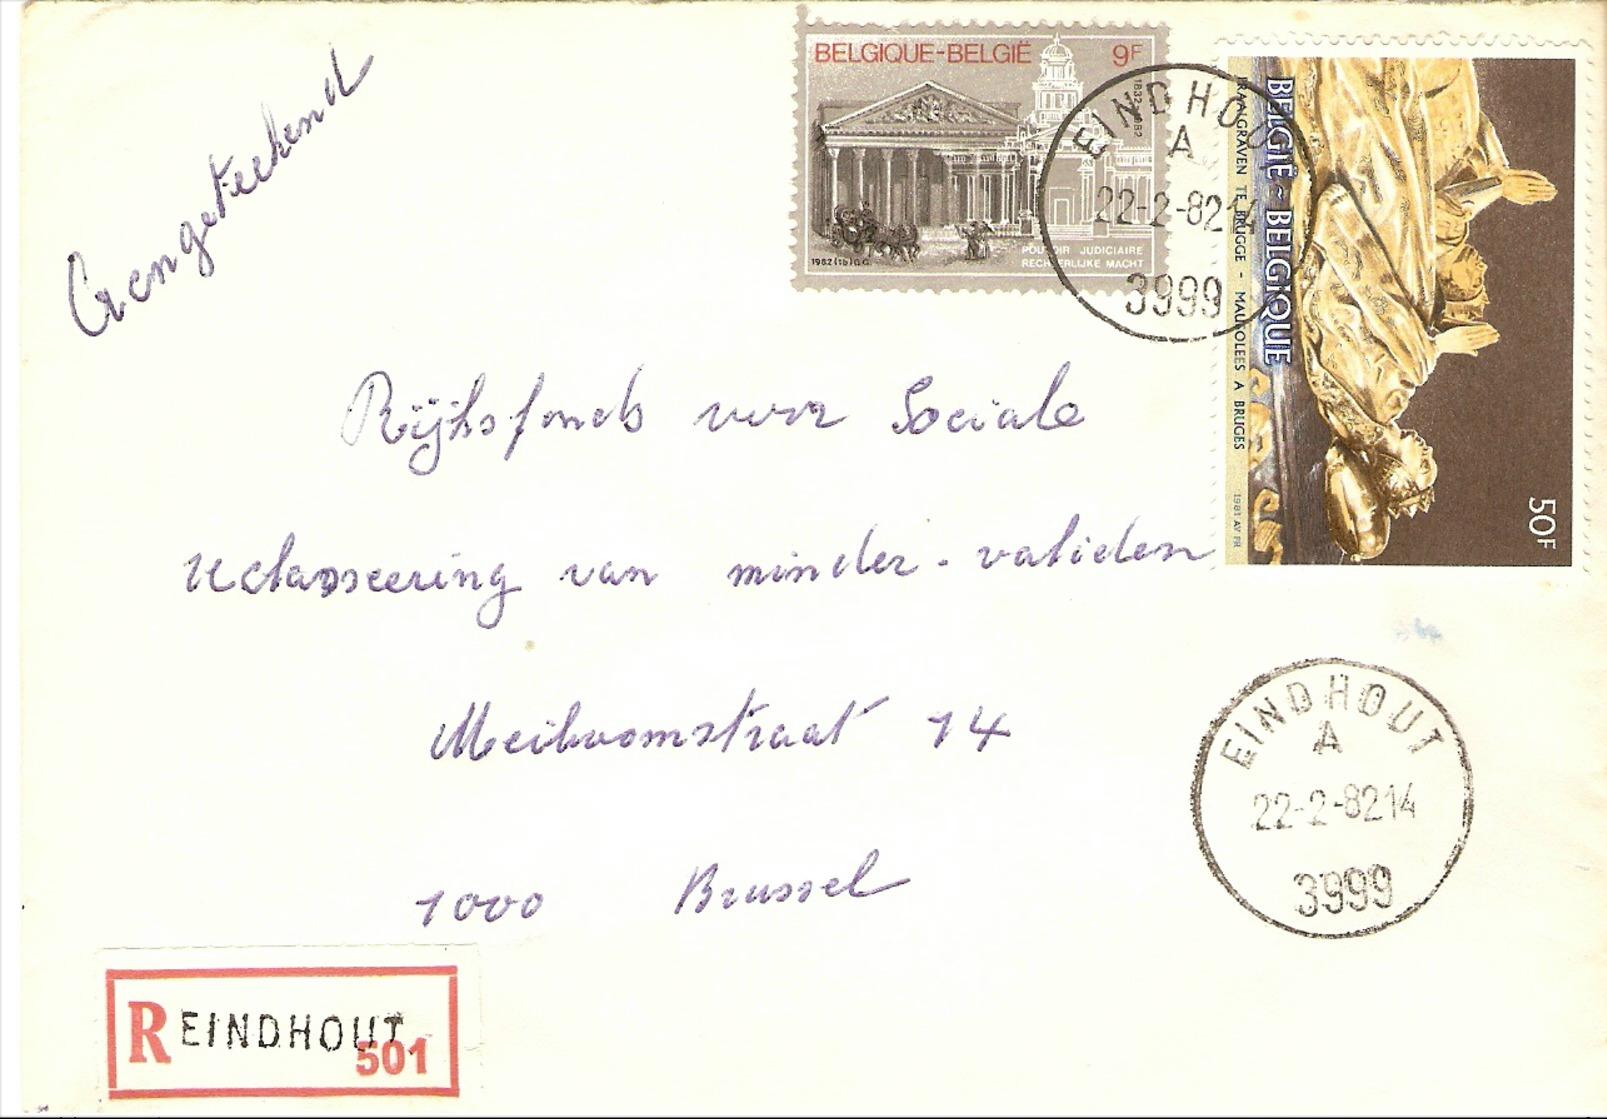 Aangetekend
BELGIQUE-BELGIË 9F
1832-1982
POUVOIR JUDICIAIRE
RECHTERLIJKE MACHT
1982(1b)
BELGIË - BELGIQUE
PRAALGRAVEN TE BRUGGE - MAUSOLEES A BRUGES
1981 AV PR
50F
EINDHOUT
A
22-2-82 14
3999
Rijksfonds voor Sociale
reclasseering van minder-validen
Meiboomstraat 14
1000 Brussel
EINDHOUT
A
22-2-82 14
3999
R EINDHOUT
501